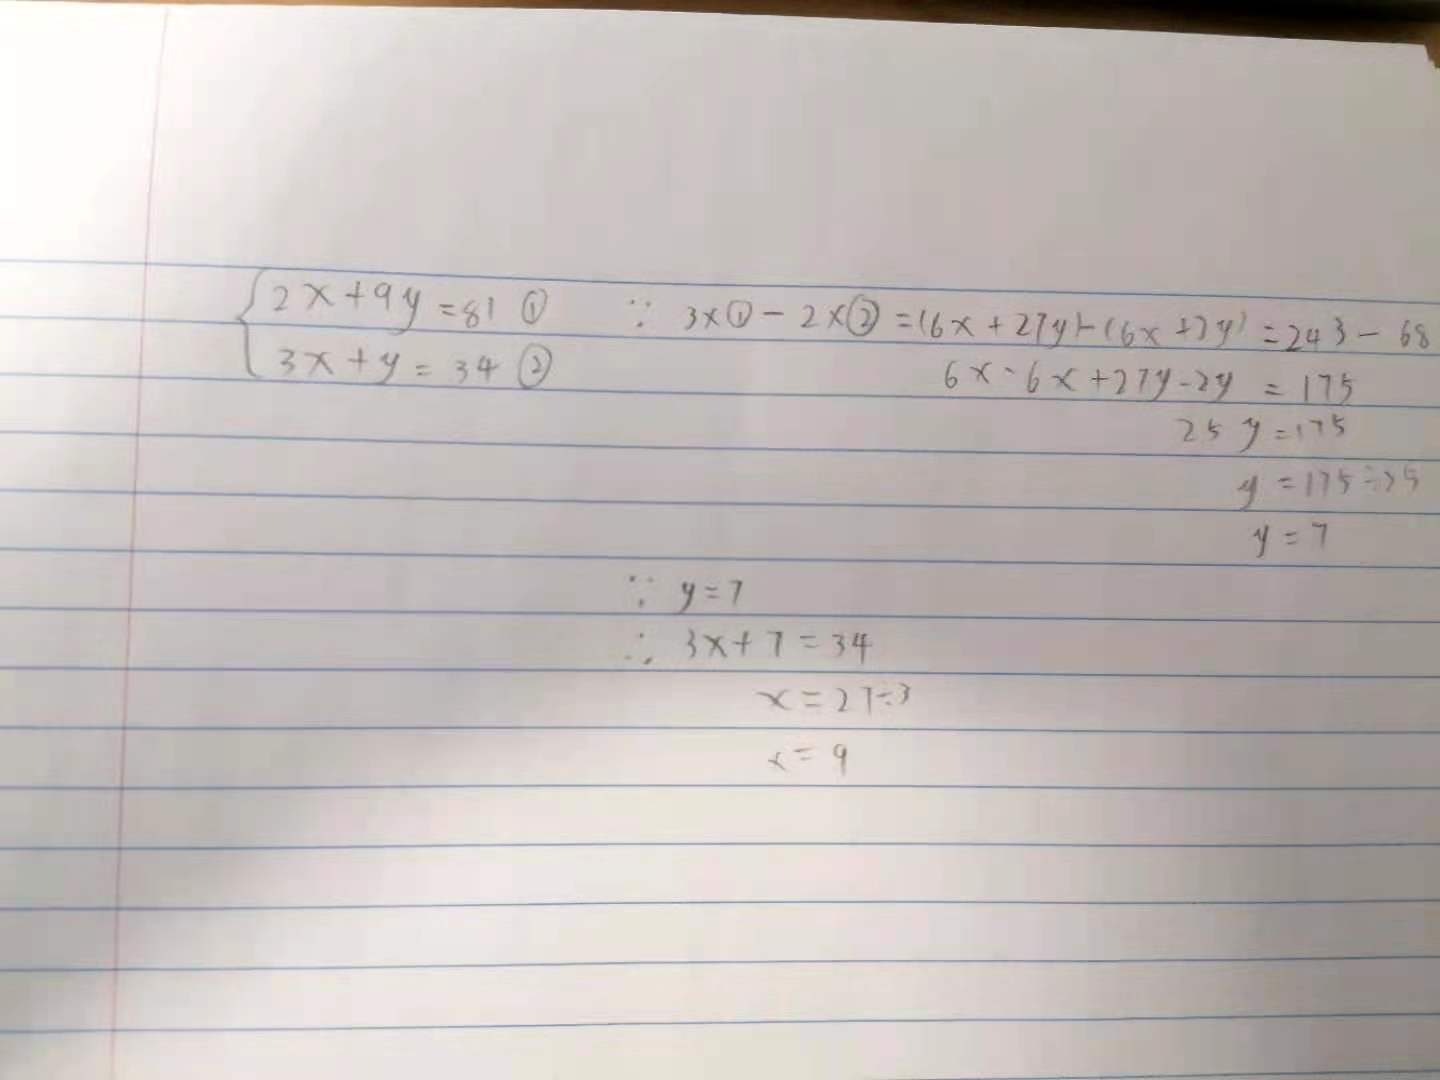 {2x+9y=81 ①
3x+y=34 ②
∵ 3×①-2×②=(6x+27y)-(6x+2y)=243-68
6x-6x+27y-2y=175
25y=175
y=175÷25
y=7
∵ y=7
∴ 3x+7=34
x=27÷3
x=9